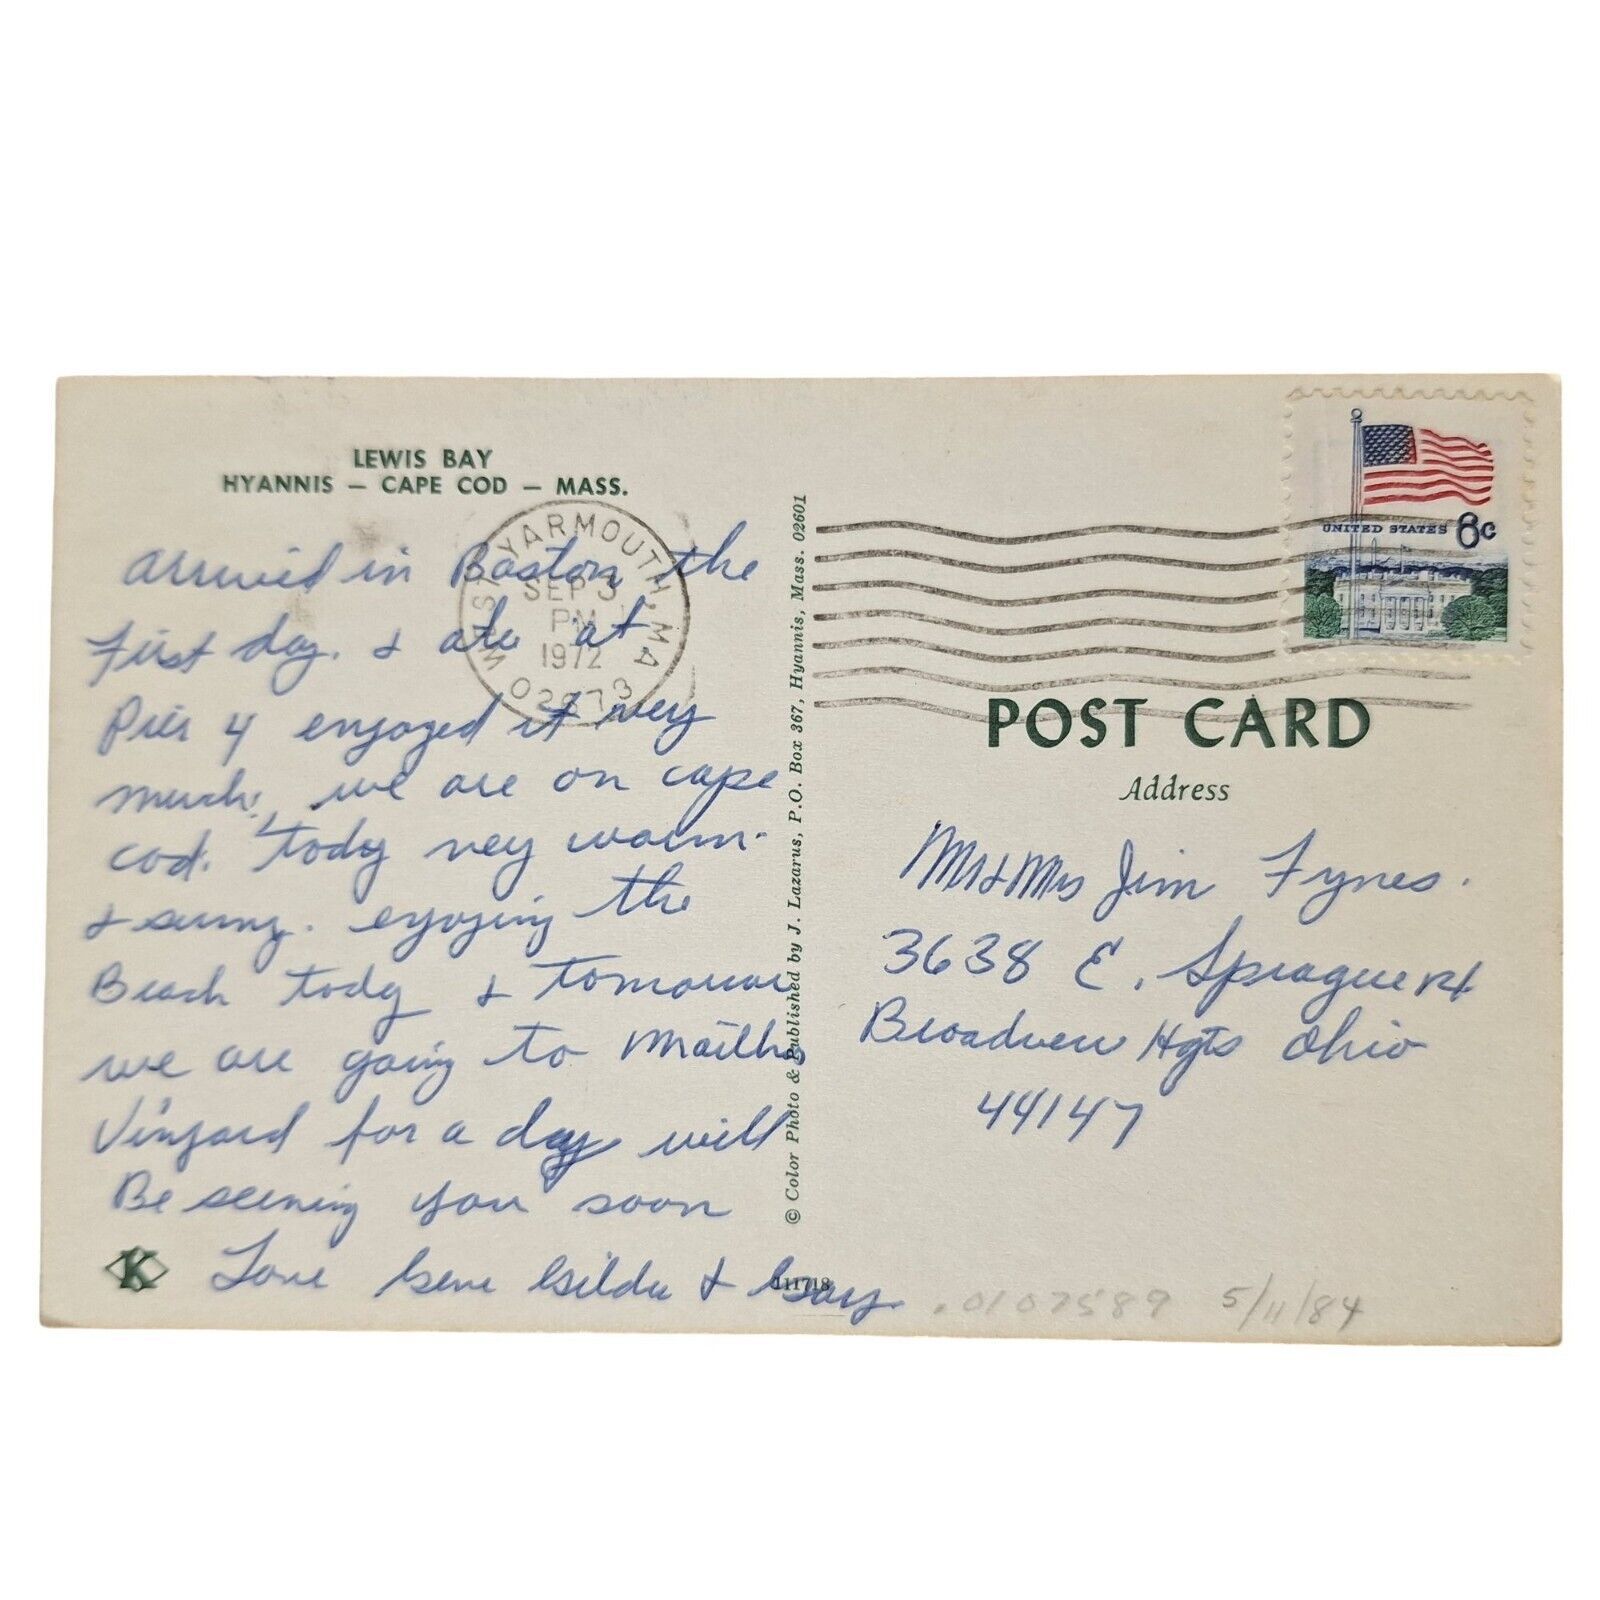 LEWIS BAY
HYANNIS — CAPE COD — MASS.
WEST YARMOUTH, MA
SEP 3
PM
1972
02673
arrived in Boston the
First day. & ate at
Pier 4 enjoyed it very
much, we are on cape
cod. today very warm.
& sunny. enjoying the
Beach today &
we are going to
Vinyard for a day will
Be seeing you soon
Love Gene Gilda & Gary.
K
111718
© Color Photo & Published by J. Lazarus, P.O. Box 367, Hyannis, Mass. 02601
UNITED STATES 8c
POST CARD
Address
Mr & Mrs Jim Fynes.
3638 E. Sprague Rd
Broadview Hgts Ohio
44147
.0107589 5/11/84